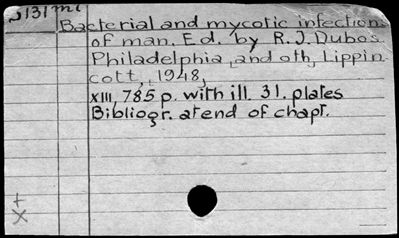 5131 mi
Bacterial and mycotic infections
of man. Ed. by R.J. Dubos
Philadelphia and oth, Lippin
cott, 1948,
XIII, 785 p. with ill. 31. plates
Bibliogr. at end of chapt.
+
X